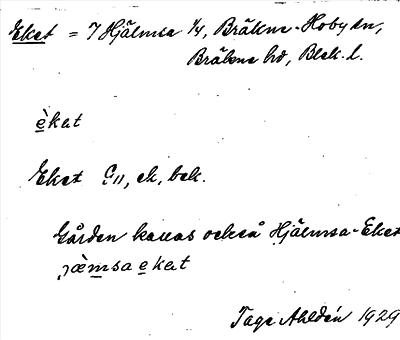 Eket = 7 Hjälmsa 1/4, Bräkne-Hoby sn,
Bräkne hd, Blek. l.
èkat
Eket G11, ek, bek.
Gården kallas också Hjälmsa-Eket
jæ̀msa ekat
Tage Ahldén 1929